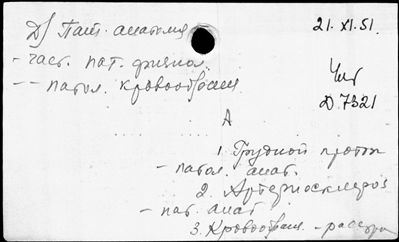 Д) Пат. анатомия
21. XI. 51.
- част. пат. физиол.
-- патол. кровообращ
Чит
Д 7321
А
1. Грудной проток
- патол. анат.
2. Артериосклероз
- пат. анат
3. Кровообращ. - расстр